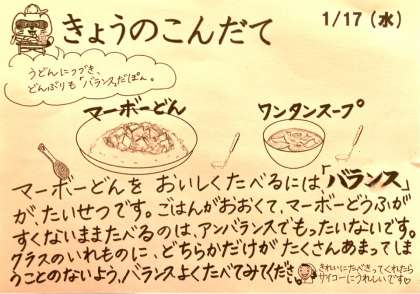 きょうのこんだて
1/17(水)
うどんにつづき、
どんぶりも「バランス」だぽん。
マーボーどん
ワンタンスープ
マーボーどんを おいしくたべるには「バランス」
が、たいせつです。ごはんがおおくて、マーボーどうふが
すくないままたべるのは、アンバランスでもったいないです。
クラスのいれものに、どちらかだけが たくさんあまってしま
うことのないよう、バランスよくたべてみてください。
きれいにたべきってくれたら
サイコーにうれしいです♡